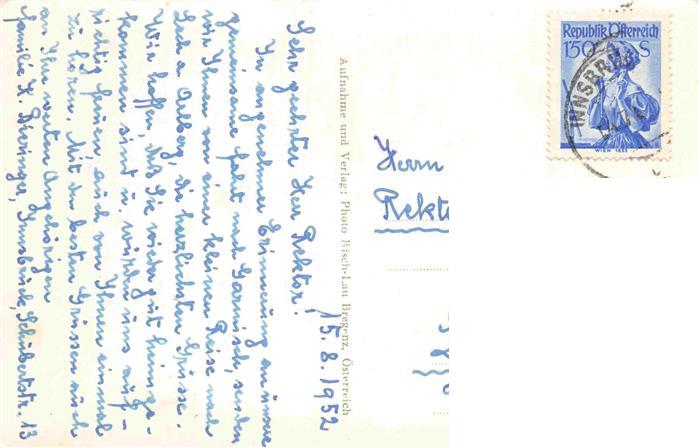 15.8.1952
Sehr geehrter Herr Rektor!
In angenehmer Erinnerung an unsere
gemeinsame Fahrt nach Garmisch, senden
wir Ihnen von einer kleinen Reise nach
Lech a. Arlberg, die herzlichsten Grüsse.
Wir hoffen, daß Sie wieder gut heimge-
kommen sind u. würden uns auf-
richtig freuen, auch von Ihnen einmal
zu hören. Mit den besten Grüssen auch
an Ihre werten Angehörigen
Familie K. Dieringer, Innsbruck, Schubertstr. 13
Aufnahme und Verlag: Photo Risch-Lau Bregenz, Österreich
Herrn
Rekto
Republik Österreich
1'50 S
WIEN 1853
INNSBRUCK